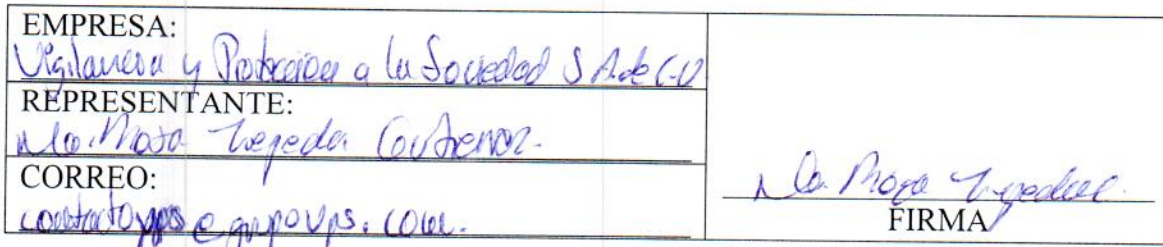 EMPRESA:
Vigilancia y Protección a la Sociedad S.A. de C.V
REPRESENTANTE:
Ma. Rosa Tejeda Gutierrez.
CORREO:
@grupovps.com.
Ma. Rosa Tejeda
FIRMA